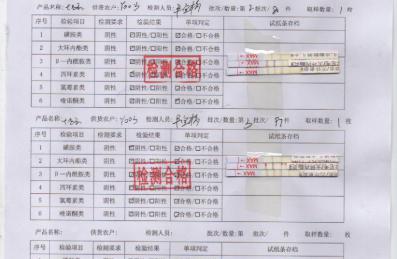 产品名称: 供货农户: 检测人员: 批次/数量:第 批次/ 件 取样数量: 1 枚
序号 检验项目 检测要求 检验结果 单项判定 试纸条存档
1 磺胺类 阴性 ☑阴性/☐阳性 ☑合格/☐不合格
2 大环内酯类 阴性 ☑阴性/☐阳性 ☑合格/☐不合格
3 β-内酰胺类 阴性 ☑阴性/☐阳性 ☑合格/☐不合格
4 四环素类 阴性 ☑阴性/☐阳性 ☑合格/☐不合格
5 氯霉素类 阴性 ☑阴性/☐阳性 ☑合格/☐不合格
6 喹诺酮类 阴性 ☑阴性/☐阳性 ☑合格/☐不合格
检测合格
MAX
产品名称: 供货农户: 检测人员: 批次/数量:第 批次/ 取样数量: 1 枚
序号 检验项目 检测要求 检验结果 单项判定 试纸条存档
1 磺胺类 阴性 ☑阴性/☐阳性 ☑合格/☐不合格
2 大环内酯类 阴性 ☑阴性/☐阳性 ☑合格/☐不合格
3 β-内酰胺类 阴性 ☑阴性/☐阳性 ☑合格/☐不合格
4 四环素类 阴性 ☑阴性/☐阳性 ☑合格/☐不合格
5 氯霉素类 阴性 ☑阴性/☐阳性 ☑合格/☐不合格
6 喹诺酮类 阴性 ☑阴性/☐阳性 ☑合格/☐不合格
检测合格
MAX
产品名称: 供货农户: 检测人员: 批次/数量:第 批次/ 件 取样数量: 枚
序号 检验项目 检测要求 检验结果 单项判定 试纸条存档